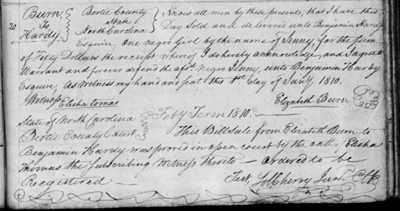 Burn Bertie County Know all men by these presents, that I have this
To State Day Sold and delivered unto Benjamin Hardy
Hardy North Carolina Esquire, One negro Girl by the name of Jenny, for the sum
of Fifty Dollars the receipt whereof I do hereby acknowledge, and
Warrant and forever defend the afsd. negro Jenny, unto Benjamin Hardy
Esquire, As witness my hand and seal this Day of Jany. 1810.
Witness Elizabeth Burn
State of North Carolina Feby Term 1810.
Bertie County Court This Bill Sale from Elizabeth Burn to
Benjamin Hardy was proved in open court by the oath of Elisha
Thomas the Subscribing Witness thereto Ordered to be
Registered
Test, Cherry Junr